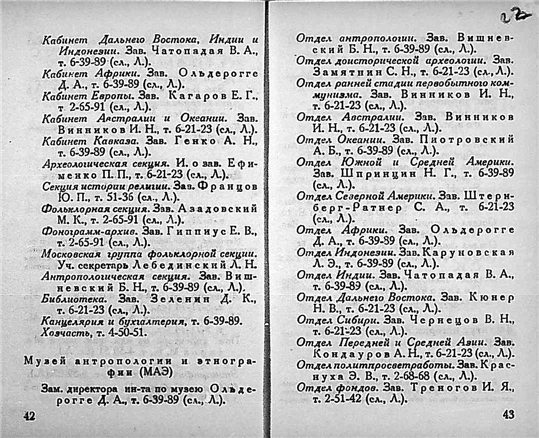 Кабинет Дальнего Востока, Индии и
Индонезии. Зав. Чатопадая В. А.,
т. 6-39-89 (сл., Л.).
Кабинет Африки. Зав. Ольдерогге
Д. А., т. 6-39-89 (сл., Л.).
Кабинет Европы. Зав. Кагаров Е. Г.,
т. 2-65-91 (сл., Л.).
Кабинет Австралии и Океании. Зав.
Винников И. Н., т. 6-21-23 (сл., Л.).
Кабинет Кавказа. Зав. Генко А. Н.,
т. 6-39-89 (сл., Л.).
Археологическая секция. И. о зав. Ефи-
менко П. П., т. 6-21-23 (сл., Л.).
Секция истории религии. Зав. Францов
Ю. П., т. 51-36 (сл., Л.).
Фольклорная секция. Зав. Азадовский
М. К., т. 2-65-91 (сл., Л.).
Фонограмм-архив. Зав. Гиппиус Е. В.,
т. 2-65-91 (сл., Л.).
Московская группа фольклорной секции.
Уч. секретарь Лебединский Л. Н.
Антропологическая секция. Зав. Виш-
невский Б. Н., т. 6-39-89 (сл., Л.).
Библиотека. Зав. Зеленин Д. К.,
т. 6-21-23 (сл., Л.).
Канцелярия и бухгалтерия, т. 6-39-89.
Хозчасть, т. 4-50-51.
Музей антропологии и этногра-
фии (МАЭ)
Зам. директора ин-та по музею Ольде-
рогге Д. А., т. 6-39-89 (сл., Л.).
42
22
Отдел антропологии. Зав. Вишнев-
ский Б. Н., т. 6-39-89 (сл., Л.).
Отдел доисторической археологии. Зав.
Замятнин С. Н., т. 6-21-23 (сл., Л.).
Отдел ранней стадии первобытного ком-
мунизма. Зав. Винников И. Н.,
т. 6-21-23 (сл., Л.).
Отдел Австралии. Зав. Винников
И. Н., т. 6-21-23 (сл., Л.).
Отдел Океании. Зав. Пиотровский
А. Б., т. 6-39-89 (сл., Л.).
Отдел Южной и Средней Америки.
Зав. Шпринцин Н. Г., т. 6-39-89
(сл., Л.).
Отдел Северной Америки. Зав. Штерн-
берг-Ратнер С. А., т. 6-21-23
(сл., Л.).
Отдел Африки. Зав. Ольдерогге
Д. А., т. 6-39-89 (сл., Л.).
Отдел Индонезии. Зав. Каруновская
Л. Э., т. 6-39-89 (сл., Л.).
Отдел Индии. Зав. Чатопадая В. А.,
т. 6-39-89 (сл., Л.).
Отдел Дальнего Востока. Зав. Кюнер
Н. В., т. 6-21-23 (сл., Л.).
Отдел Сибири. Зав. Чернецов В. Н.,
т. 6-21-23 (сл., Л.).
Отдел Передней и Средней Азии. Зав.
Кондауров А. Н., т. 6-21-23 (сл., Л.).
Отдел политпросветработы. Зав. Крас-
нуха Э. В., т. 2-68-68 (сл., Л.).
Отдел фондов. Зав. Треногов И. Я.,
т. 2-51-42 (сл., Л.).
43